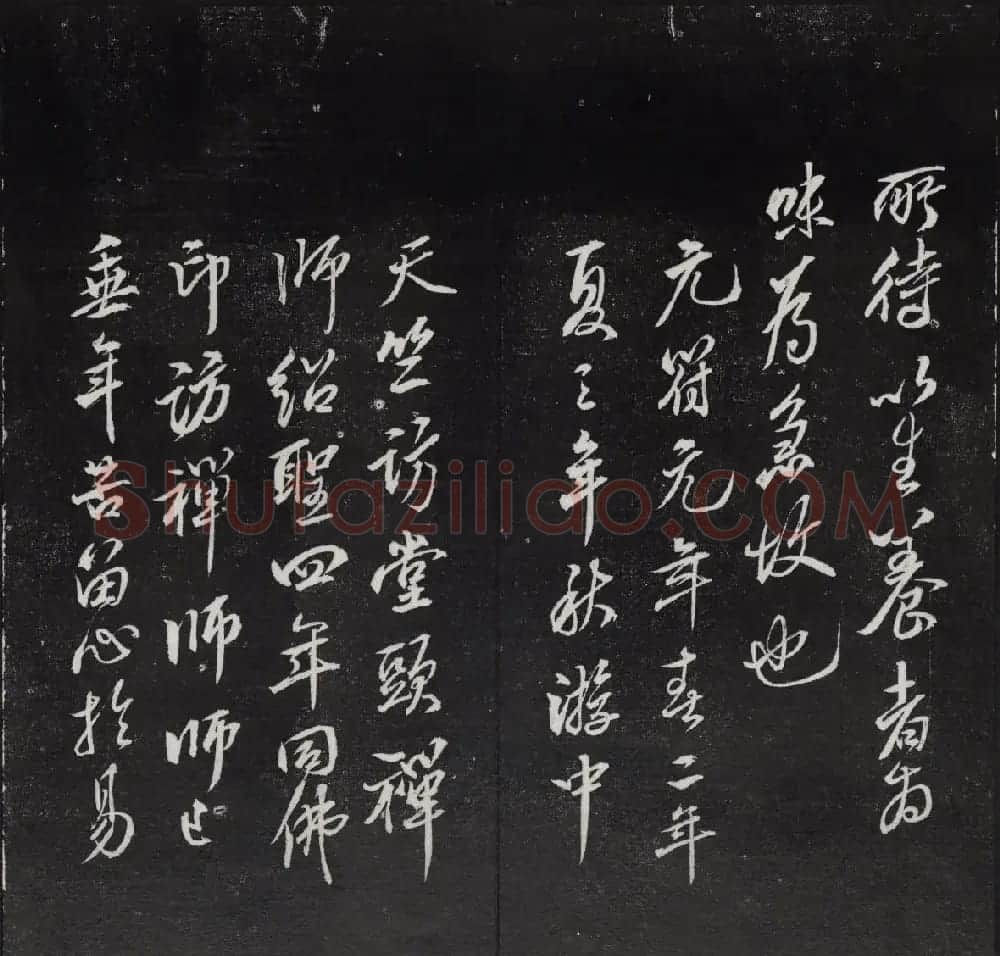 所待以生以養者為
味為急故也
元符元年春二年
夏三年秋游中
天竺訪堂頭禪
師紹聖四年同佛
印訪禪師師已
垂年苦留心於易
Shufaziliao.COM